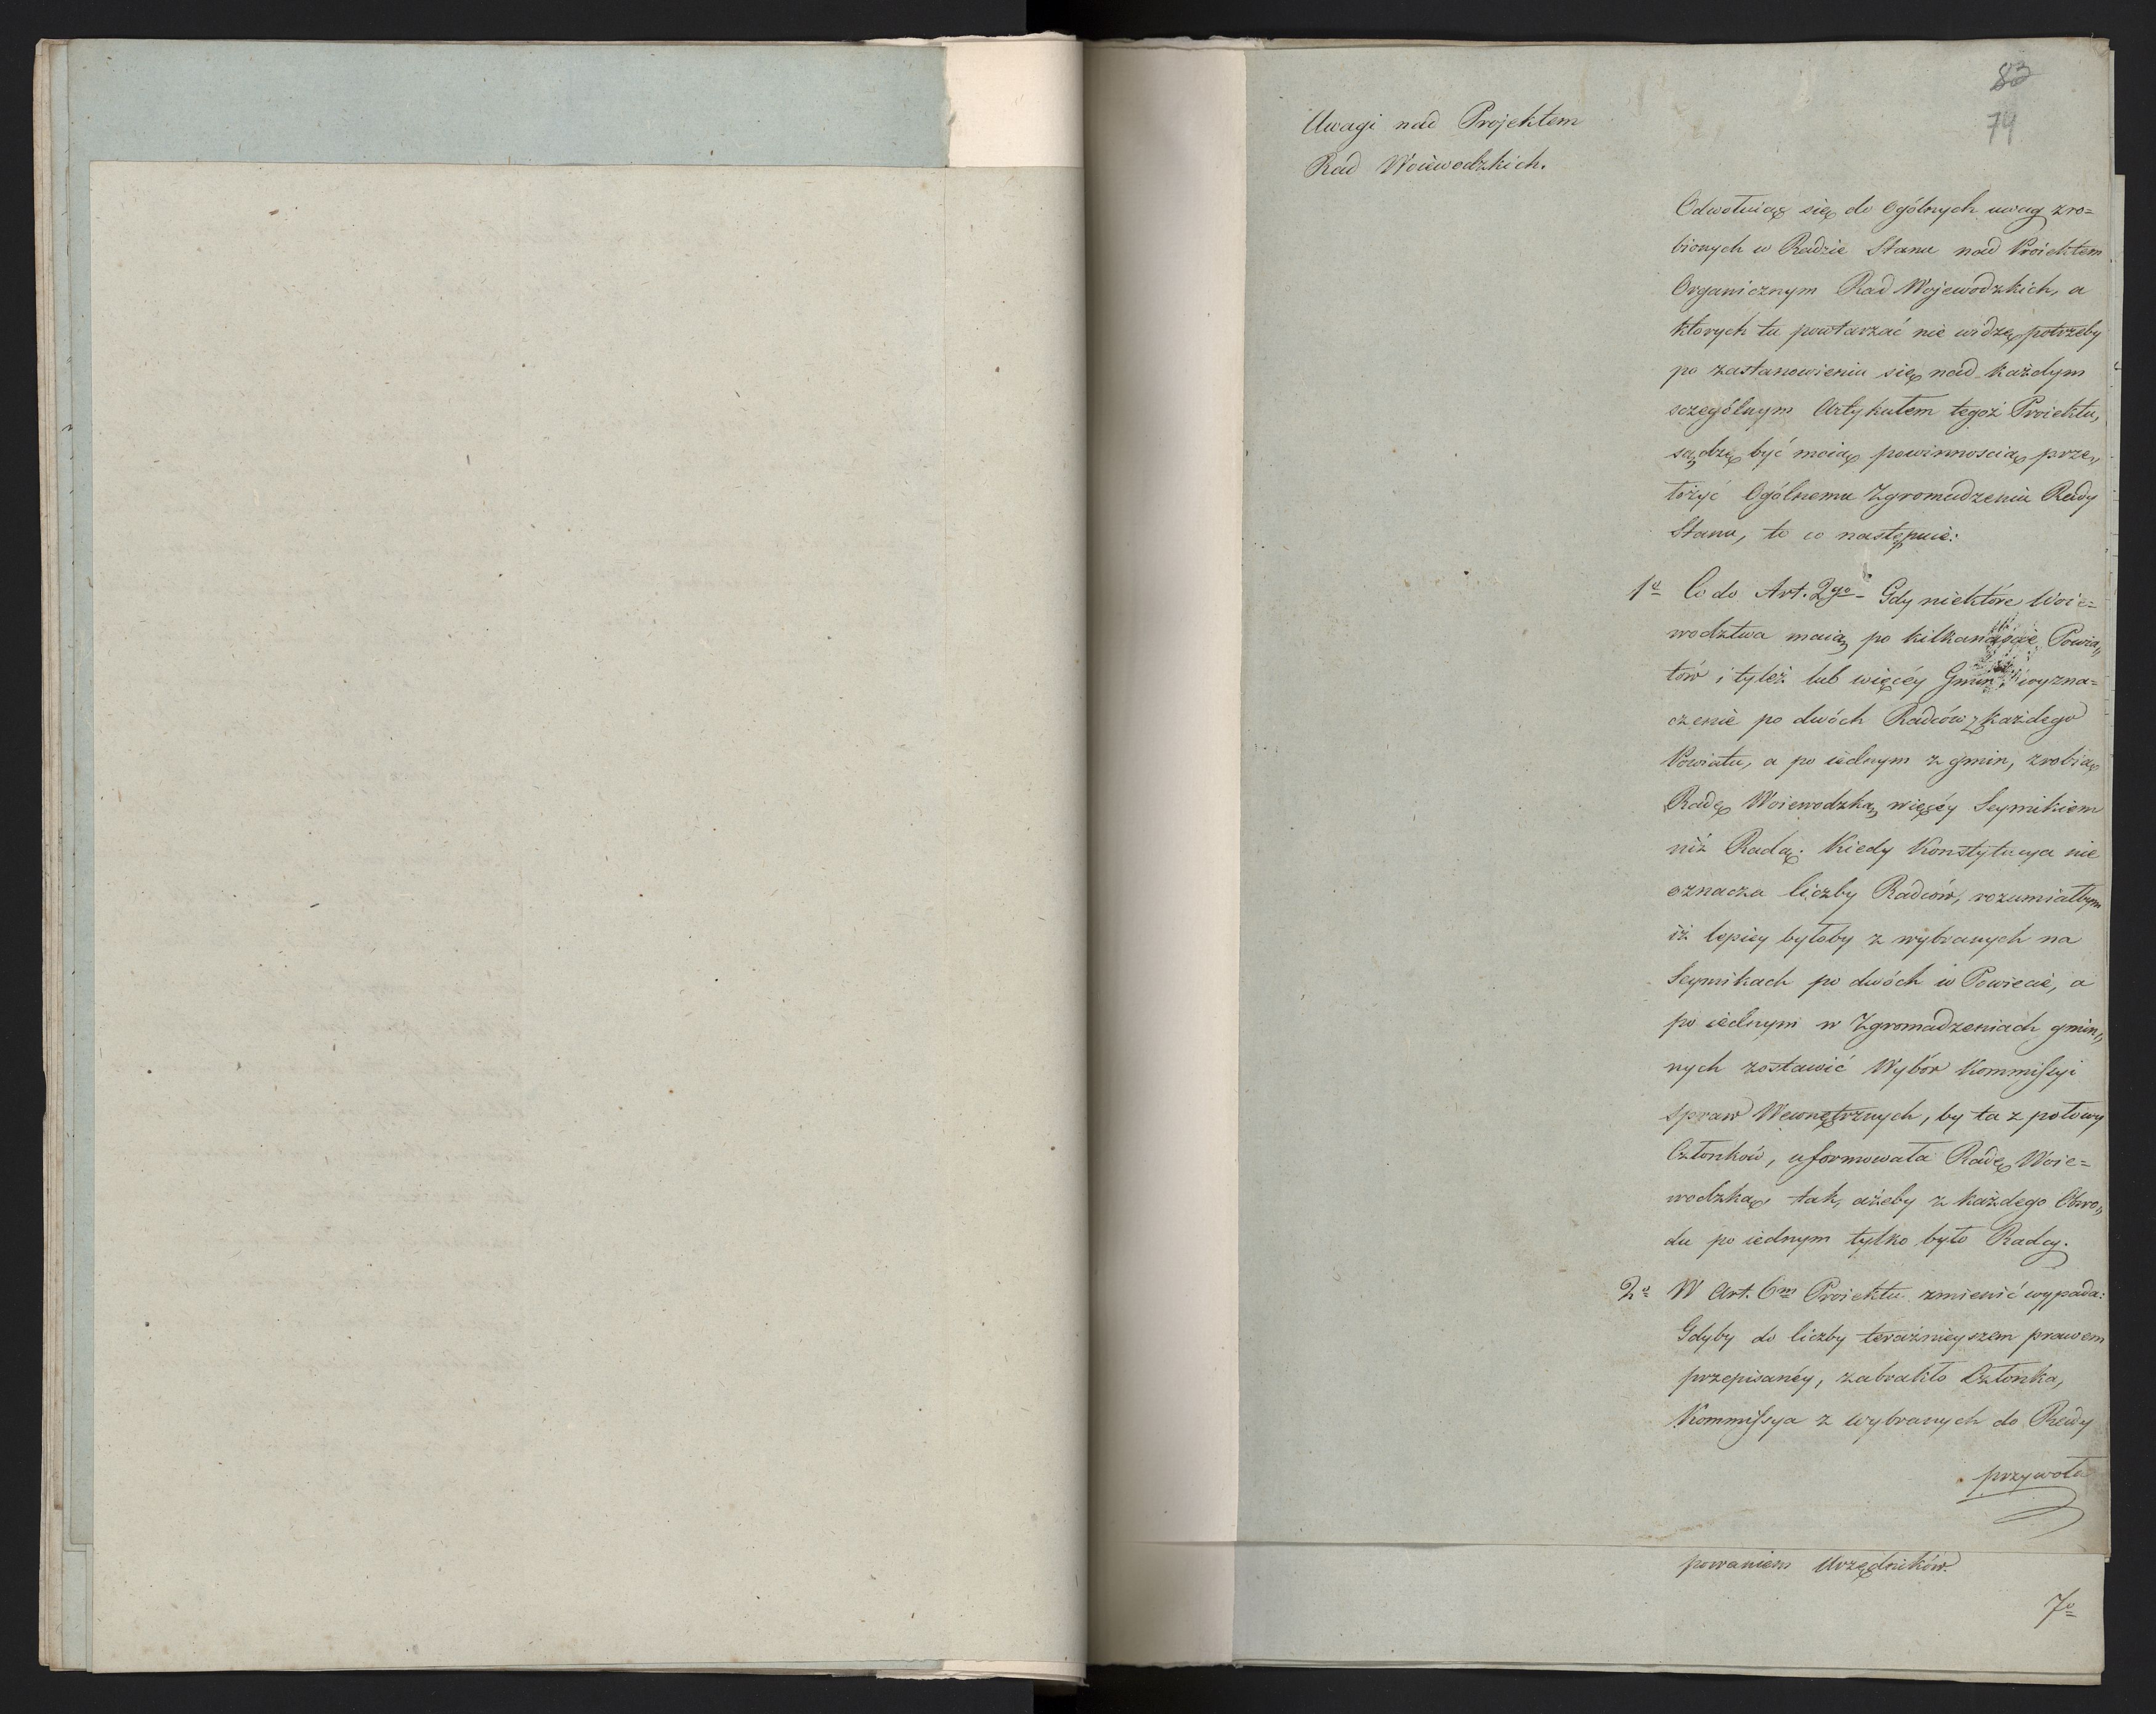 83
74
Uwagi nad Projektem
Rad Woiewodzkich.
Odwołuiąc się do Ogólnych uwag zro=
bionych w Radzie Stanu nad Proiektem
Organicznym Rad Wojewodzkich, a
ktorych tu powtarzać nie widzę potrzeby
po zastanowieniu się nad każdym
szczególnym Artykułem tegoż Proiektu,
sądzę być moią powinnoscią prze„
łożyć Ogólnemu Zgromadzeniu Rady
Stanu, to co następuie:
1º Co do Art. 2go Gdy niektóre Woie=
wodztwa maią po kilkanaście Powia„
tów i tyleż lub więcéy Gmin, wyzna=
czenie po dwóch Radców z każdego
Powiatu, a po iednym z gmin, zrobią
Radę Woiewodzką więcéy Seymikiem
niż Radą. Kiedy Konstytucya nie
oznacza liczby Radców, rozumiałbym
iż lepiey byłoby z wybranych na
Seymikach po dwóch w Powiecie, a
po iednym w Zgromadzeniach gmin„
nych zostawić Wybór Kommissyi
Spraw Wewnętrznych, by ta z połowy
Członków, uformowała Radę Woie=
wodzką, tak, ażeby z każdego Obwo„
du po iednym tylko było Radcy.
2º W Art. 6m Proiektu zmienić wypada:
Gdyby do liczby teraźnieyszem prawem
przepisanéy, zabrakło Członka,
Kommissya z wybranych do Rady
przywoła
powaniem Urzędników.
7º